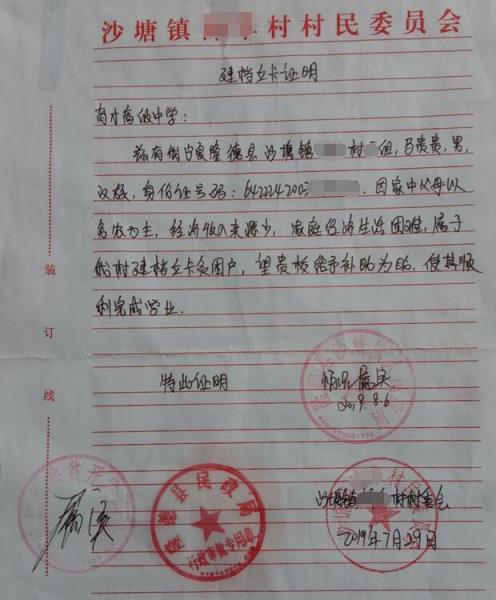 沙塘镇 村村民委员会
建档立卡证明
育才高级中学：
兹有我宁夏隆德县沙塘镇 村 组，吕贵贵，男，
汉族，身份证号码：642224200 ，因家中父母以
务农为主，经济收入来源少，家庭经济生活困难，属于
我村建档立卡贫困户，望贵校给予补助为盼，使其顺
利完成学业．
特此证明
情况属实
2019.8.6
装
订
线
属实
隆德县民政局
行政审批专用章
沙塘镇 村村委会
2019年7月29日